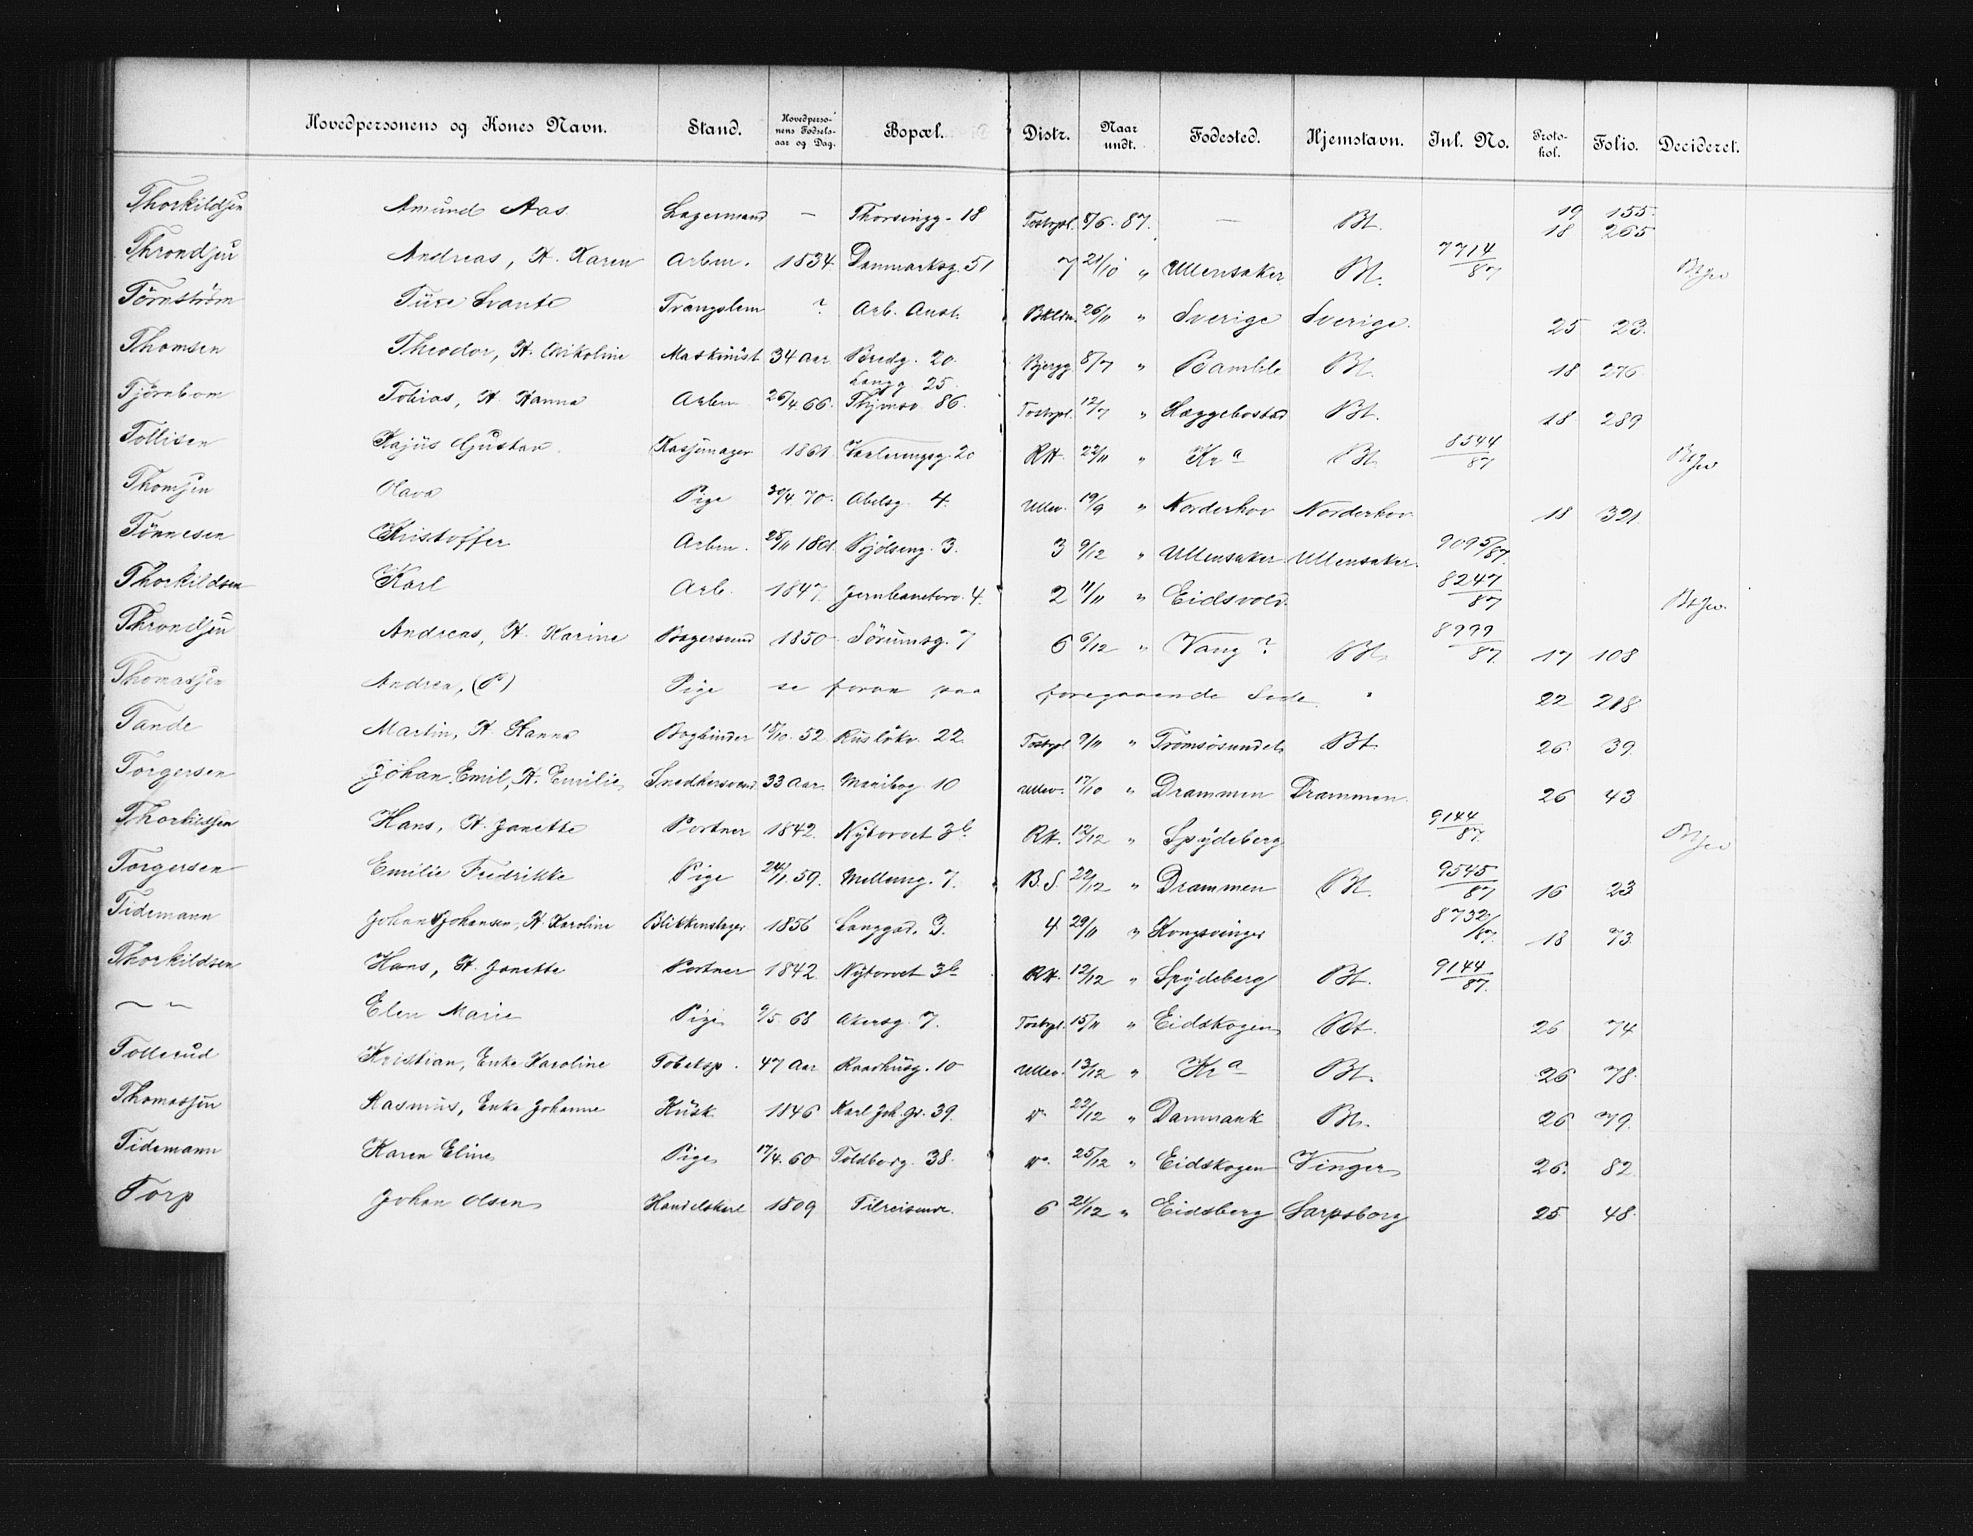 Hovedpersonens og Kones Navn. Stand. Hovedpersonens Fødselsaar og Dag. Bopæl. Distr. Naar undt. Fødested. Hjemstavn. Inl. No. Protokol. Folio. Decideret.
Thorkildsen Amund Aas Lagermand — Thorsingg. 18 Tostrpl. 8/6 87. — Bt. 19 155. 18 265
Throndsen Andreas, H. Karen Arbm. 1834 Danmarksg. 51 7 21/10 " Ullensaker Bt. 7714/87
Törnström Ture Svante Tvangslem ? Arb. Anst. 26/11 " Sverige Sverige. 25 23.
Thomsen Theodor, H. Nikoline Maskinist 34 Aar Bredg. 20. Bjergg 8/7 " Bamble Bt. 18 276
Tjörnbom Tobias, H. Hanna Arbm 26/4 66 Langg 25. 86. Tostrpl. 12/7 " Hæggebostad Bt. 18 289
Tollisen Kajus Gustav 1861 Vaaleringsg. 20 RH 22/11 " Kra Bt. 8544/87
Thomsen Olava Pige 30/4 70. Abelsg. 4. Ullev. 19/9 " Norderhov Norderhov 18 321
Tönnesen Kristoffer Arbm. 28/11 1861 Bjölseng. 3. 3 9/12 " Ullensaker Ullensaker. 9095/87.
Thorkildsen Karl Arb. 1847. Jernbanetorv. 4. 2 11/11 " Eidsvold. 8247/87
Throndsen Andreas, H. Karine Bagersvend 1850 Sörumsg. 7 6 6/12 " Vang? Bt. 8999/87. 17 108
Thomassen Andrea, (P) Pige se foran paa foregaaende Side. " 22 218
Tande Martin, H. Hanna Bogbinder 15/10. 52 Ruslökv. 22. Tostrpl 9/11 " Tromsösundet Bt. 26 39.
Torgersen Johan Emil, H. Emilie Snedkersvend 33 Aar. Maribog. 10 Ullev. 17/10 " Drammen Drammen. 26 43
Thorkildsen Hans, H. Janette Portner 1842. Nytorvet 3b RH. 12/12 " Spydeberg 9144/87.
Torgersen Emilie Fredrikke Pige 24/1 59. Mellung. 7. B.S. 22/12 " Drammen Bt. 9545/87 16 23
Tidemann Johan Johansen, H. Karoline Blikkenslager 1856 Langgad. 3. 4 29/11 " Kongsvinger 8732/87. 18 73.
Thorkildsen Hans, H. Janette Portner 1842 Nytorvet 3b RH. 12/12 " Spydeberg Bt. 9144/87.
— " — Elen Marie Pige 9/5. 68 Akersg. 7. Tostrpl. 15/11 " Eidskogen Bt. 26 74
Tollerud Kristian, Enke Karoline Tobaksp. 47 Aar Raadhusg. 10 Ullev. 13/12 " Kra Bt. 26 78.
Thomassen Rasmus, Enke Johanne Kusk. 1846 Karl Joh. G. 39. 22/12 " Danmark Bt. 26 79.
Tidemann Karen Eline Pige 17/4. 60 Toldbog. 38. 25/12 " Eidskogen Vinger 26. 82.
Torp Johan Olsen Handelskarl 1809 Tilreisende. 6 21/12 " Eidsberg Sarpsborg 25 48.